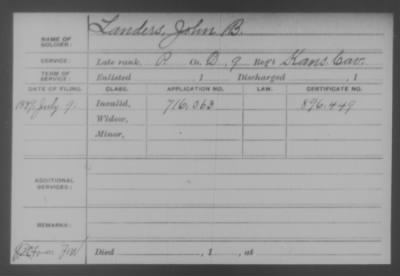 NAME OF SOLDIER: Landers, John B.
SERVICE: Late rank, P. Co. B, 9 Reg't Kans. Cav.
TERM OF SERVICE: Enlisted , 1 Discharged , 1
DATE OF FILING. CLASS. APPLICATION NO. LAW. CERTIFICATE NO.
July 9. Invalid, 716.063 896.449
Widow,
Minor,
ADDITIONAL SERVICES:
REMARKS:
Died , 1 , at